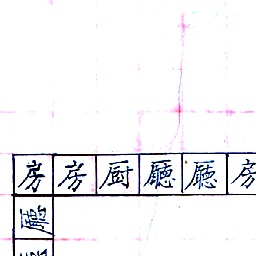 房房厨廳廳房
廳